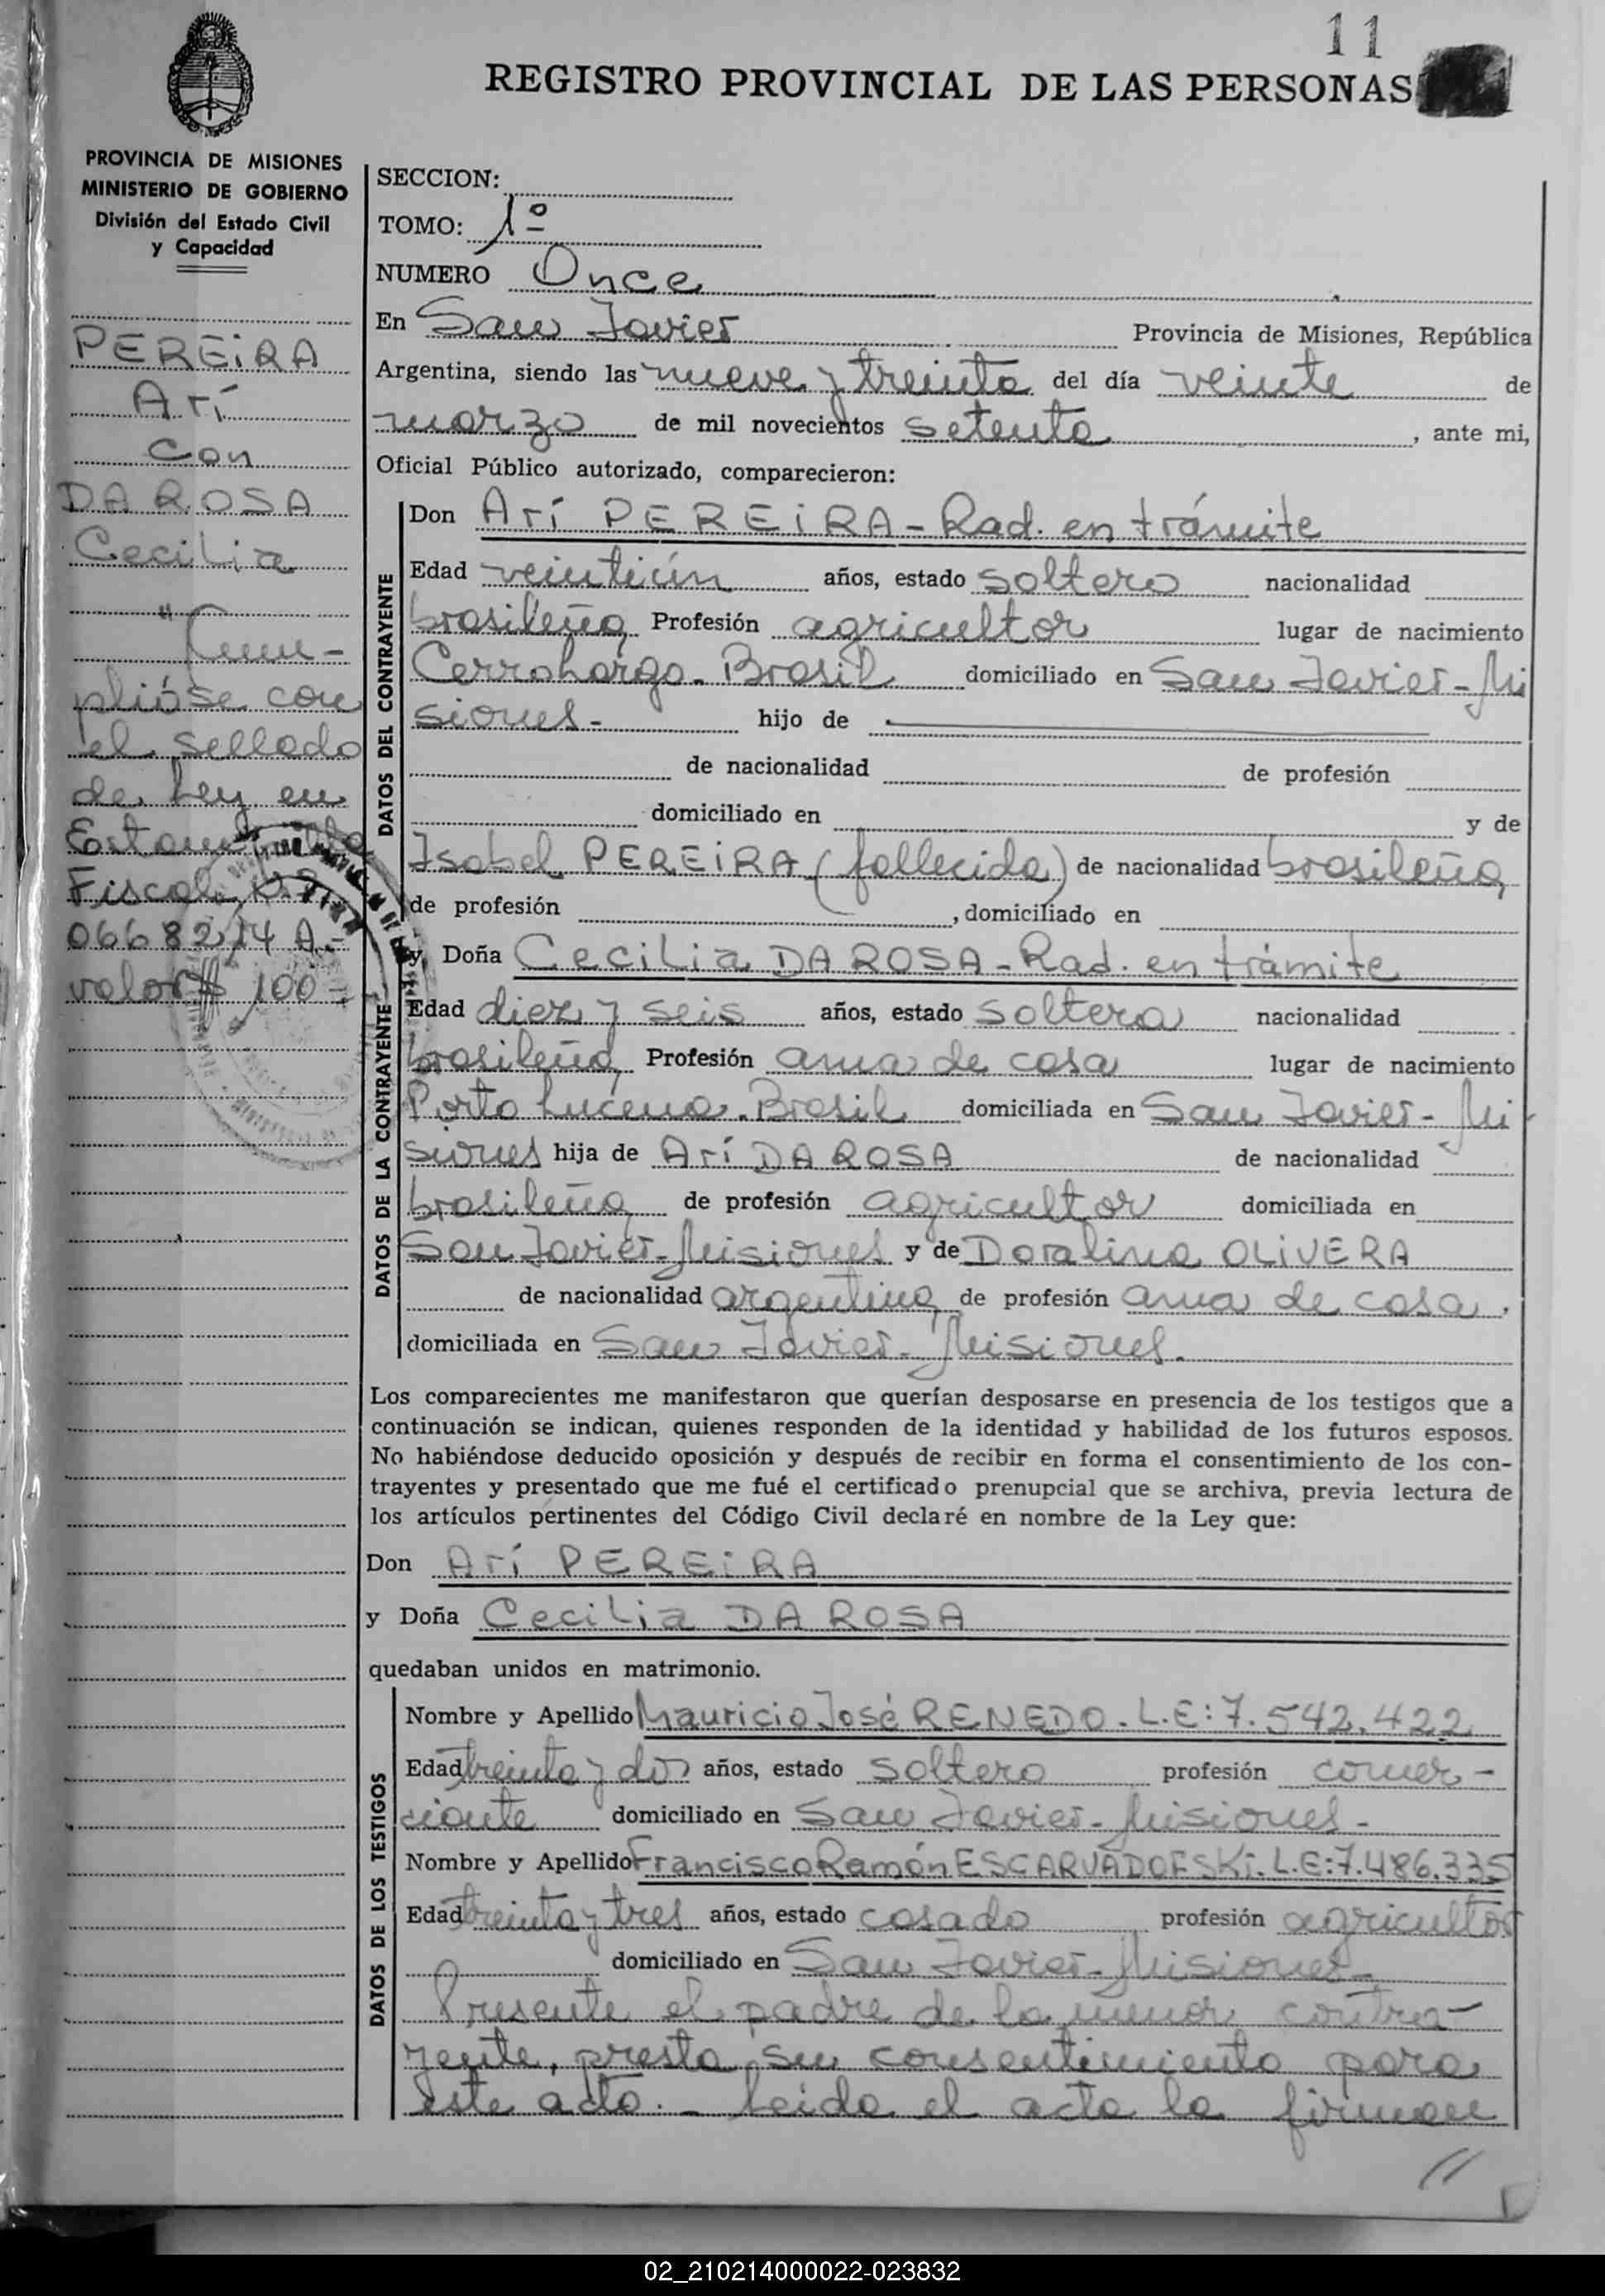 11
REGISTRO PROVINCIAL DE LAS PERSONAS
PROVINCIA DE MISIONES
MINISTERIO DE GOBIERNO
División del Estado Civil
y Capacidad
PEREIRA
Arí
con
DA ROSA
Cecilia
"Cum-
plióse con
el sellado
de Ley en
Estampilla
Fiscal Nº
066 82,14 A.-
valor $ 100-
SECCION:
TOMO: 1º
NUMERO Once
En San Javier Provincia de Misiones, República
Argentina, siendo las nueve y treinta del día veinte de
marzo de mil novecientos setenta , ante mi,
Oficial Público autorizado, comparecieron:
DATOS DEL CONTRAYENTE
Don Arí PEREIRA - Rad. en trámite
Edad veintiún años, estado soltero nacionalidad
brasileña Profesión agricultor lugar de nacimiento
Cerro Largo - Brasil domiciliado en San Javier - Mi
siones - hijo de
de nacionalidad de profesión
domiciliado en y de
Isabel PEREIRA (fallecida) de nacionalidad brasileña
de profesión , domiciliado en
DATOS DE LA CONTRAYENTE
y Doña Cecilia DA ROSA - Rad. en trámite
Edad diez y seis años, estado soltera nacionalidad
brasileña Profesión ama de casa lugar de nacimiento
Porto Lucena - Brasil domiciliada en San Javier - Mi
siones hija de Arí DA ROSA de nacionalidad
brasileña de profesión agricultor domiciliada en
San Javier - Misiones y de Doralina OLIVERA
de nacionalidad argentina de profesión ama de casa,
domiciliada en San Javier - Misiones.
Los comparecientes me manifestaron que querían desposarse en presencia de los testigos que a
continuación se indican, quienes responden de la identidad y habilidad de los futuros esposos.
No habiéndose deducido oposición y después de recibir en forma el consentimiento de los con-
trayentes y presentado que me fué el certificado prenupcial que se archiva, previa lectura de
los artículos pertinentes del Código Civil declaré en nombre de la Ley que:
Don Arí PEREIRA
y Doña Cecilia DA ROSA
quedaban unidos en matrimonio.
DATOS DE LOS TESTIGOS
Nombre y Apellido Mauricio José RENEDO. L.E: 7.542.422
Edad treinta y dos años, estado soltero profesión comer-
ciante domiciliado en San Javier - Misiones -
Nombre y Apellido Francisco Ramón ESCARVADOFSKI. L.E: 7.486.335
Edad treinta y tres años, estado casado profesión agricultor
domiciliado en San Javier - Misiones -
Presente el padre de la menor contra-
yente, presta su consentimiento para
este acto. - Leida el acta la firman
//
02_210214000022-023832